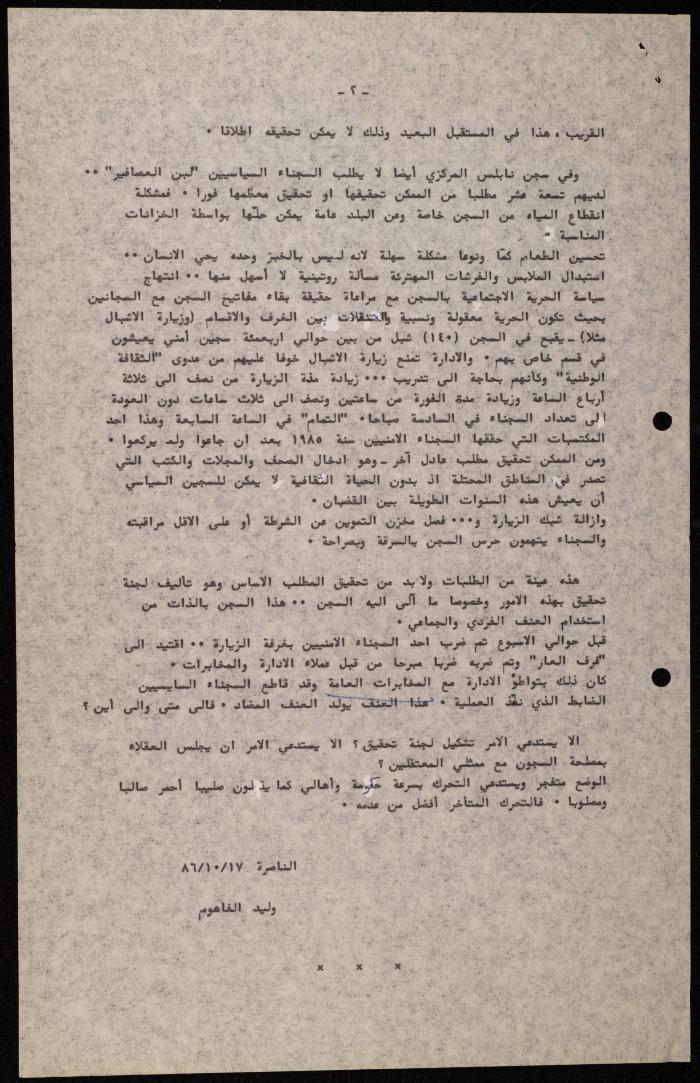 - ٢ -
القريب ، هذا في المستقبل البعيد وذلك لا يمكن تحقيقه اطلاقا .
وفي سجن نابلس المركزي أيضا لا يطلب السجناء السياسيين "لبن العصافير" ..
لديهم تسعة عشر مطلبا من الممكن تحقيقها او تحقيق معظمها فورا . فمشكلة
انقطاع المياه من السجن خاصة وعن البلد عامة يمكن حلّها بواسطة الخزانات
المناسبة .
تحسين الطعام كمّا ونوعا مشكلة سهلة لانه ليس بالخبز وحده يحي الانسان ..
استبدال الملابس والفرشات المهترئة مسألة روتينية لا أسهل منها .. انتهاج
سياسة الحرية الاجتماعية بالسجن مع مراعاة حقيقة بقاء مفاتيح السجن مع السجانين
بحيث تكون الحرية معقولة ونسبية والتنقلات بين الغرف والاقسام (وزيارة الاشبال
مثلا) - يقبع في السجن (١٤٠) شبل من بين حوالي اربعمئة سجين أمني يعيشون
في قسم خاص بهم . والادارة تمنع زيارة الاشبال خوفا عليهم من عدوى "الثقافة
الوطنية" وكأنهم بحاجة الى تدريب ... زيادة مدّة الزيارة من نصف الى ثلاثة
أرباع الساعة وزيادة مدة الفورة من ساعتين ونصف الى ثلاث ساعات دون العودة
الى تعداد السجناء في السادسة صباحا . "التمام" في الساعة السابعة وهذا احد
المكتسبات التي حققها السجناء الامنيين سنة ١٩٨٥ بعد ان جاعوا ولم يركعوا .
ومن الممكن تحقيق مطلب عادل آخر - وهو ادخال الصحف والمجلات والكتب التي
تصدر في المناطق المحتلة اذ بدون الحياة الثقافية لا يمكن للسجين السياسي
أن يعيش هذه السنوات الطويلة بين القضبان .
وازالة شبك الزيارة و... فصل مخزن التموين عن الشرطة أو على الاقل مراقبته
والسجناء يتهمون حرس السجن بالسرقة وبصراحة .
هذه عينة من الطلبات ولا بد من تحقيق المطلب الاساس وهو تأليف لجنة
تحقيق بهذه الامور وخصوصا ما آلى اليه السجن .. هذا السجن بالذات من
استخدام العنف الفردي والجماعي .
قبل حوالي الاسبوع تم ضرب احد السجناء الامنيين بغرفة الزيارة .. اقتيد الى
"غرف العار" وتم ضربه ضربا مبرحا من قبل عملاء الادارة والمخابرات .
كان ذلك بتواطؤ الادارة مع المخابرات العامة وقد قاطع السجناء السايسيين
الضابط الذي نفّذ العملية . هذا العنف يولّد العنف المضاد . فالى متى والى أين ؟
الا يستدعي الامر تشكيل لجنة تحقيق ؟ الا يستدعي الامر ان يجلس العقلاء
بمصلحة السجون مع ممثلي المعتقلين ؟
الوضع متفجر ويستدعي التحرك بسرعة حكومة وأهالي كما يذ صليبا أحمر صالبا
ومصلوبا . فالتحرك المتأخر أفضل من عدمه .
الناصرة ٨٦/١٠/١٧
وليد الفاهوم
x x x